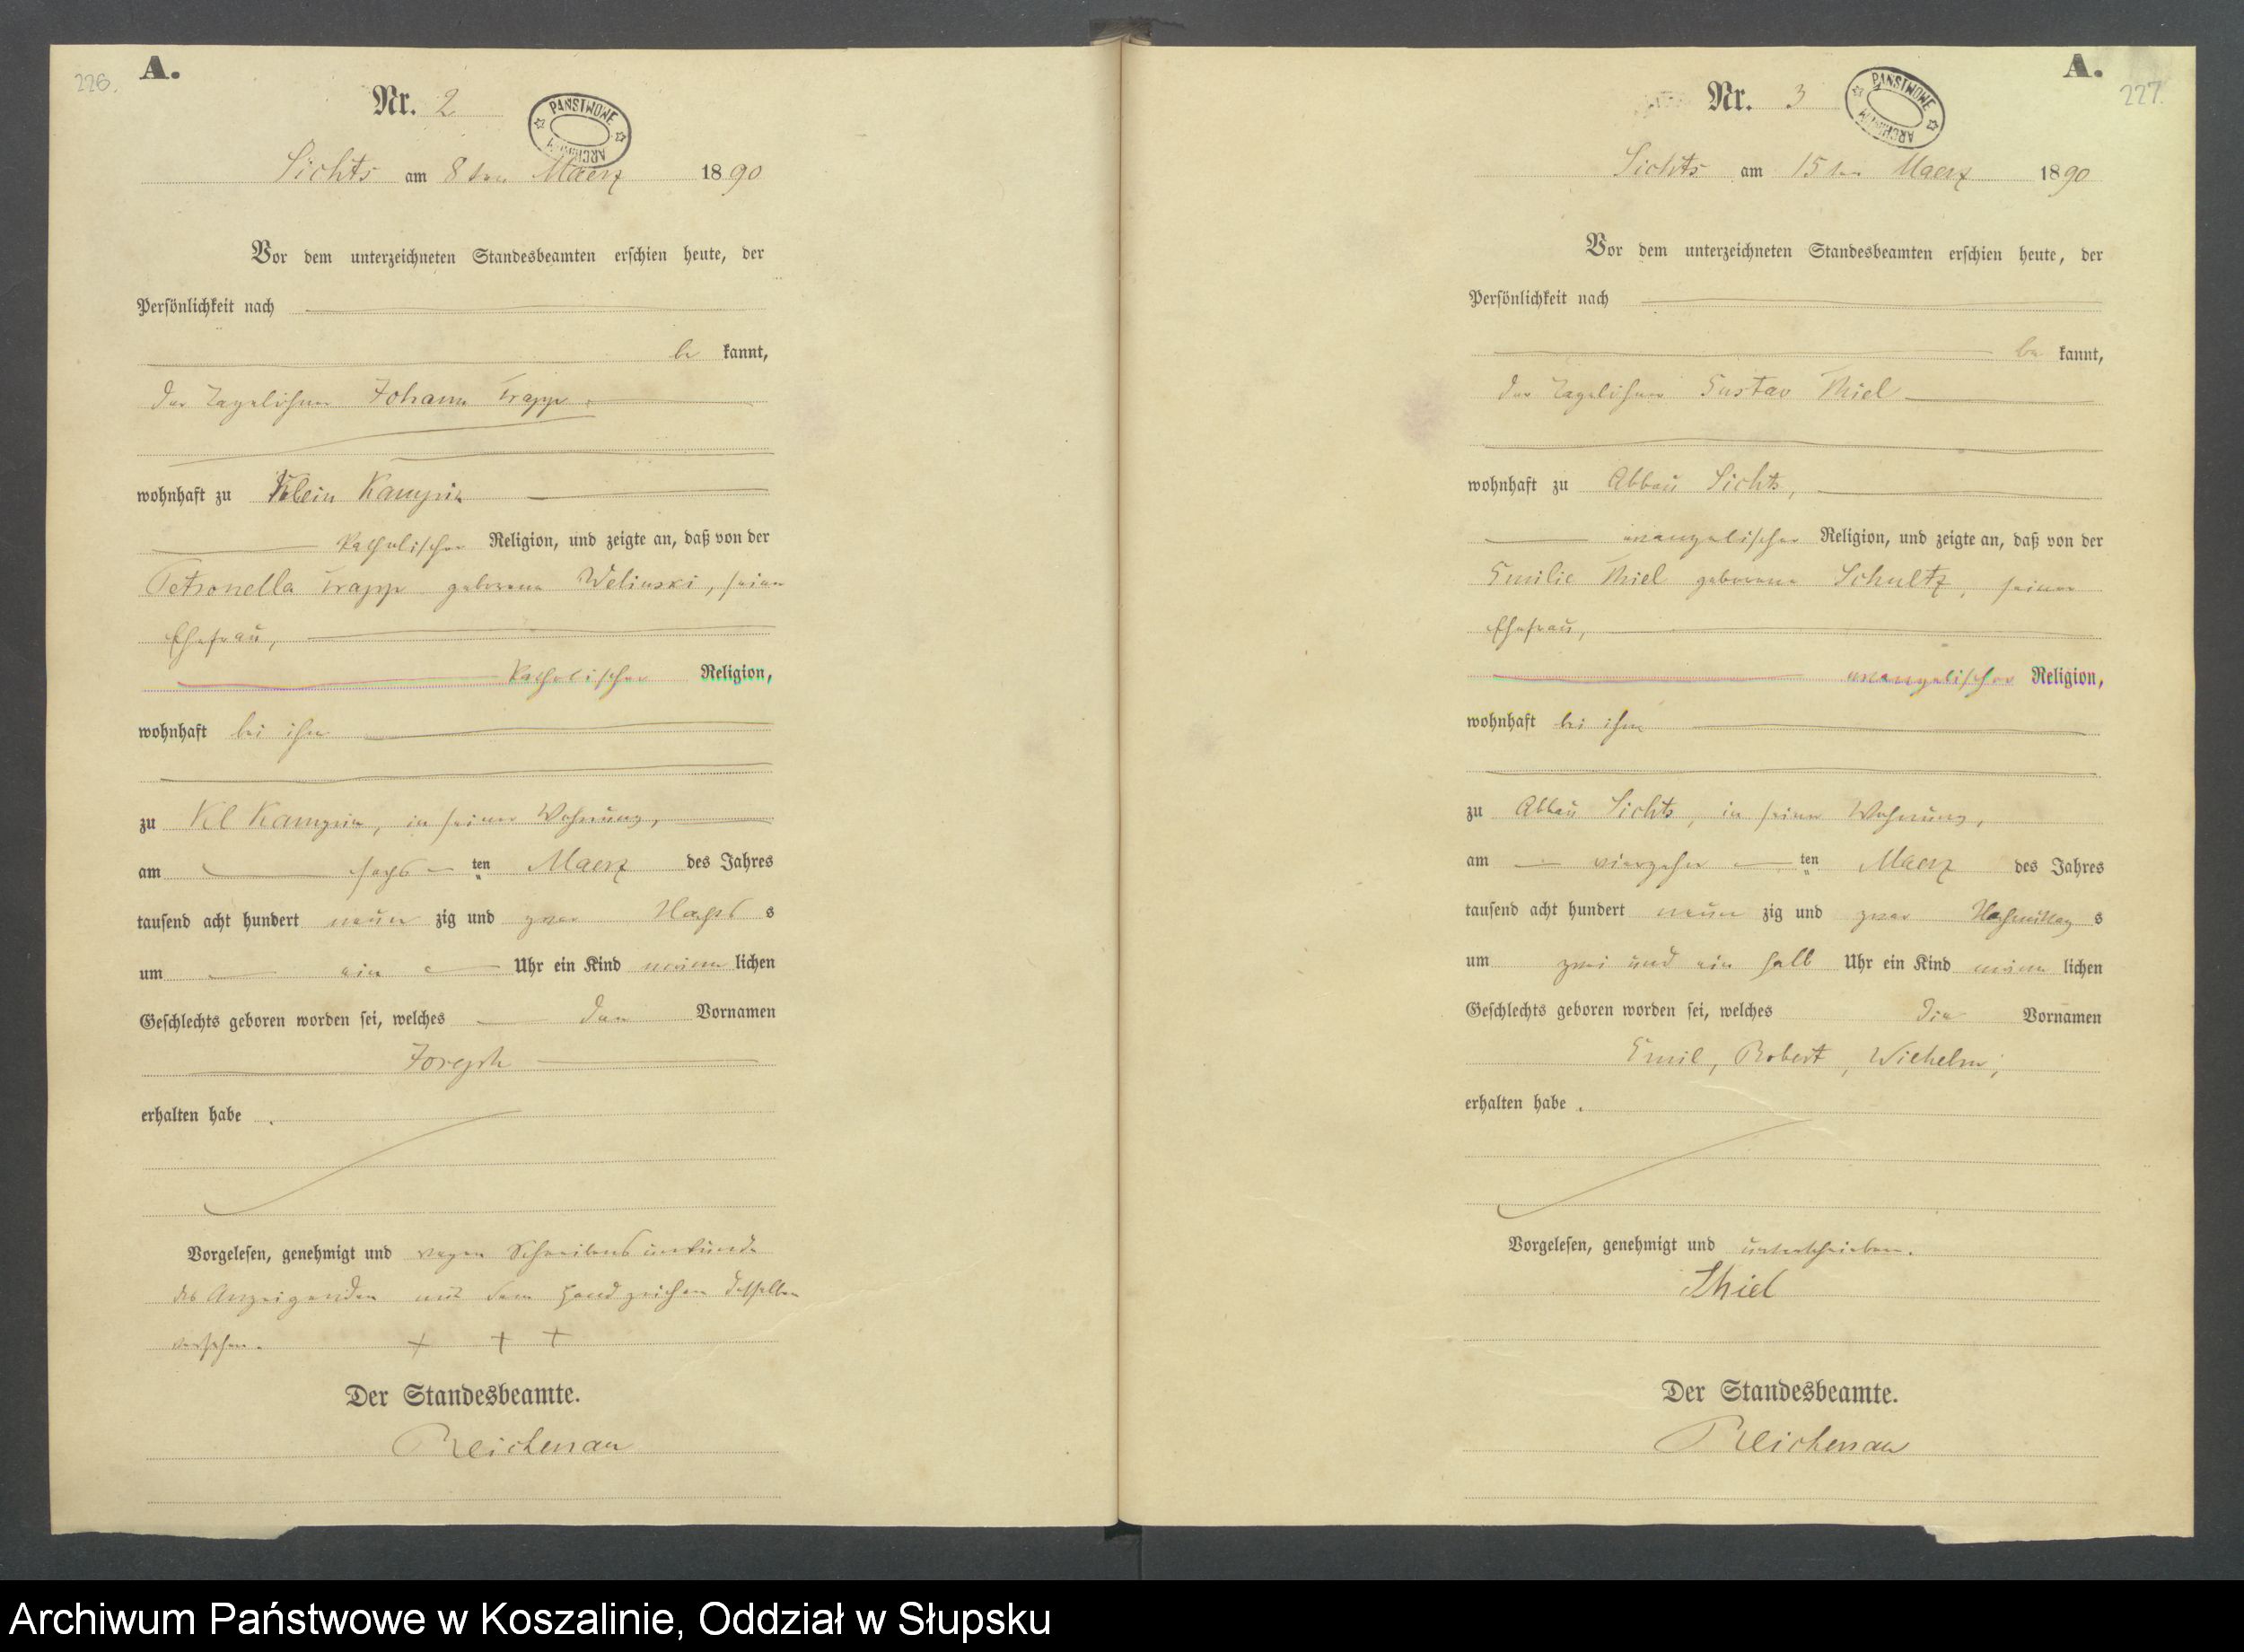 226.
A.
Nr. 2
PAŃSTWOWE ARCHIWUM
Sichts am 8ten Maerz 1890
Vor dem unterzeichneten Standesbeamten erschien heute, der
Persönlichkeit nach
be kannt,
der Tagelöhner Johann Trapp
wohnhaft zu Klein Kampin
katholischer Religion, und zeigte an, daß von der
Petronella Trapp geborene Welinski, seiner
Ehefrau,
katholischer Religion,
wohnhaft bei ihm
zu Kl Kampin, in seiner Wohnung,
am sechs ten Maerz des Jahres
tausend acht hundert neun zig und zwar Nachts s
um ein Uhr ein Kind männ lichen
Geschlechts geboren worden sei, welches den Vornamen
Joseph
erhalten habe .
Vorgelesen, genehmigt und wegen Schreibensunkunde
des Anzeigenden mit dem Handzeichen desselben
versehen. + + +
Der Standesbeamte.
Reichenau
A.
227.
Nr. 3
PAŃSTWOWE ARCHIWUM
Sichts am 15ten Maerz 1890
Vor dem unterzeichneten Standesbeamten erschien heute, der
Persönlichkeit nach
be kannt,
der Tagelöhner Gustav Thiel
wohnhaft zu Abbau Sichts,
evangelischer Religion, und zeigte an, daß von der
Emilie Thiel geborene Schultz, seiner
Ehefrau,
evangelischer Religion,
wohnhaft bei ihm
zu Abbau Sichts, in seiner Wohnung,
am vierzehn ten Maerz des Jahres
tausend acht hundert neun zig und zwar Nachmittag s
um zwei und ein halb Uhr ein Kind männ lichen
Geschlechts geboren worden sei, welches die Vornamen
Emil, Robert, Wilhelm,
erhalten habe .
Vorgelesen, genehmigt und unterschrieben.
Thiel
Der Standesbeamte.
Reichenau
Archiwum Państwowe w Koszalinie, Oddział w Słupsku